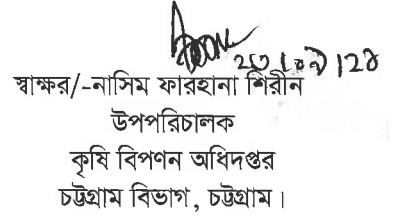 স্বাক্ষর/-নাসিম ফারহানা শিরীন
উপপরিচালক
কৃষি বিপণন অধিদপ্তর
চট্টগ্রাম বিভাগ, চট্টগ্রাম।